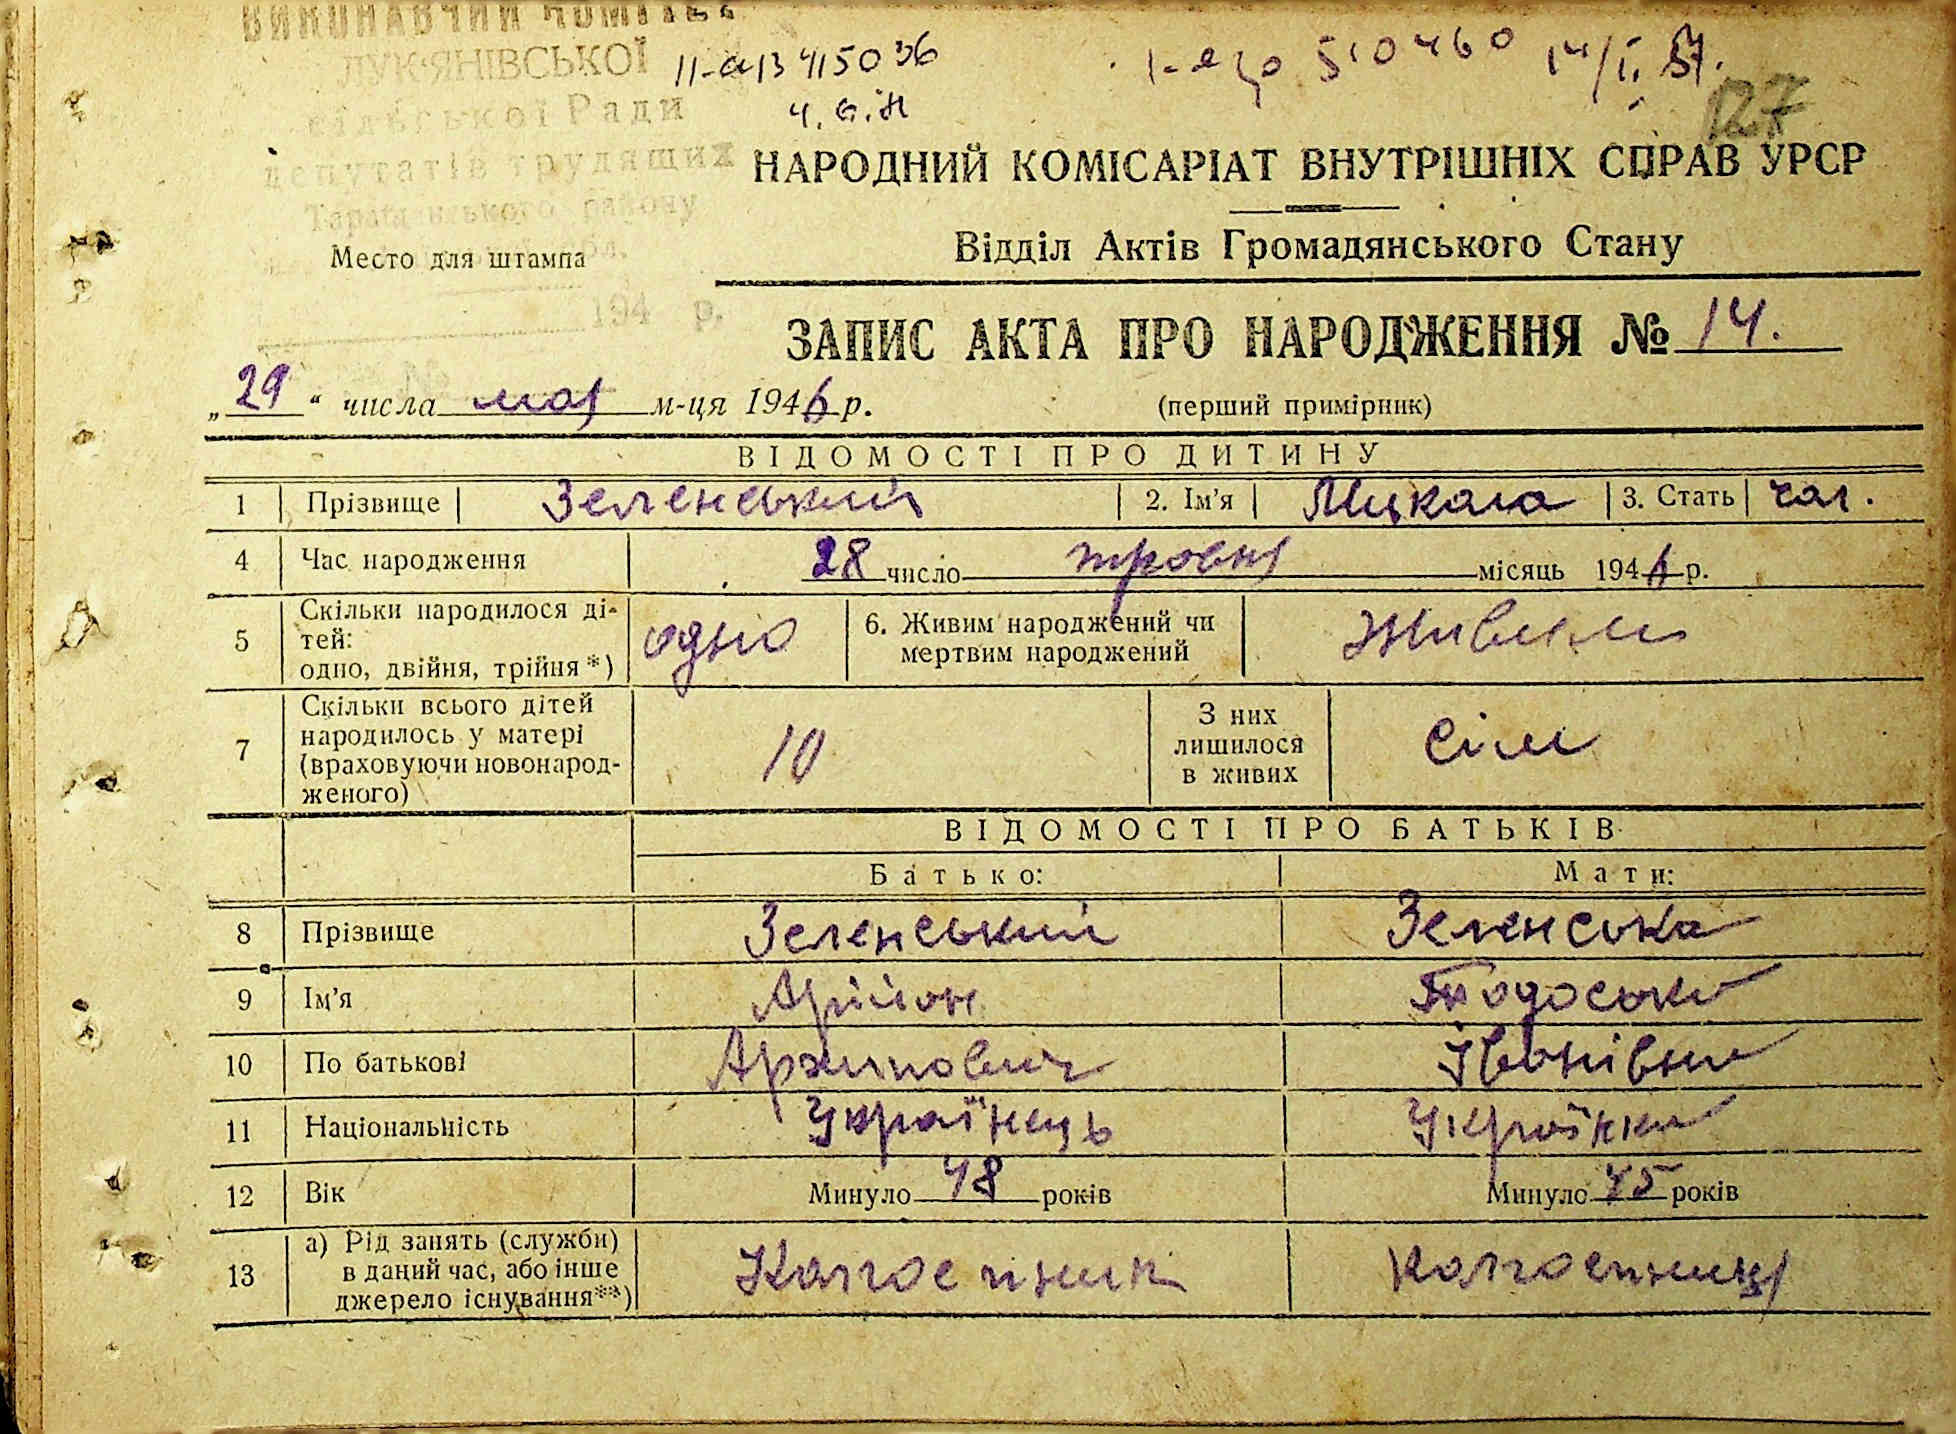 ВИКОНАВЧИЙ КОМІТЕТ
ЛУК'ЯНІВСЬКОЇ
сільської Ради
депутатів трудящих
Таращанського району
ІІ-а
510460 14/І. 57.
127
НАРОДНИЙ КОМІСАРІАТ ВНУТРІШНІХ СПРАВ УРСР
Відділ Актів Громадянського Стану
Место для штампа
194 р.
ЗАПИС АКТА ПРО НАРОДЖЕННЯ № 14.
„29" числа мая м-ця 1946 р.
(перший примірник)
ВІДОМОСТІ ПРО ДИТИНУ
1 Прізвище Зеленський 2. Ім'я Микола 3. Стать чол.
4 Час народження 28 число травня місяць 1946 р.
5 Скільки народилося ді-
тей:
одно, двійня, трійня *) одно
6. Живим народжений чи
мертвим народжений Живим
7 Скільки всього дітей
народилось у матері
(враховуючи новонарод-
женого) 10
З них
лишилося
в живих сім
ВІДОМОСТІ ПРО БАТЬКІВ
Батько: Мати:
8 Прізвище Зеленський Зеленська
9 Ім'я Тодоська
10 По батькові Архипович Іванівна
11 Національність Українець Українка
12 Вік Минуло 48 років Минуло 45 років
13 а) Рід занять (служби)
в даний час, або інше
джерело існування**) Колгоспник колгоспниця